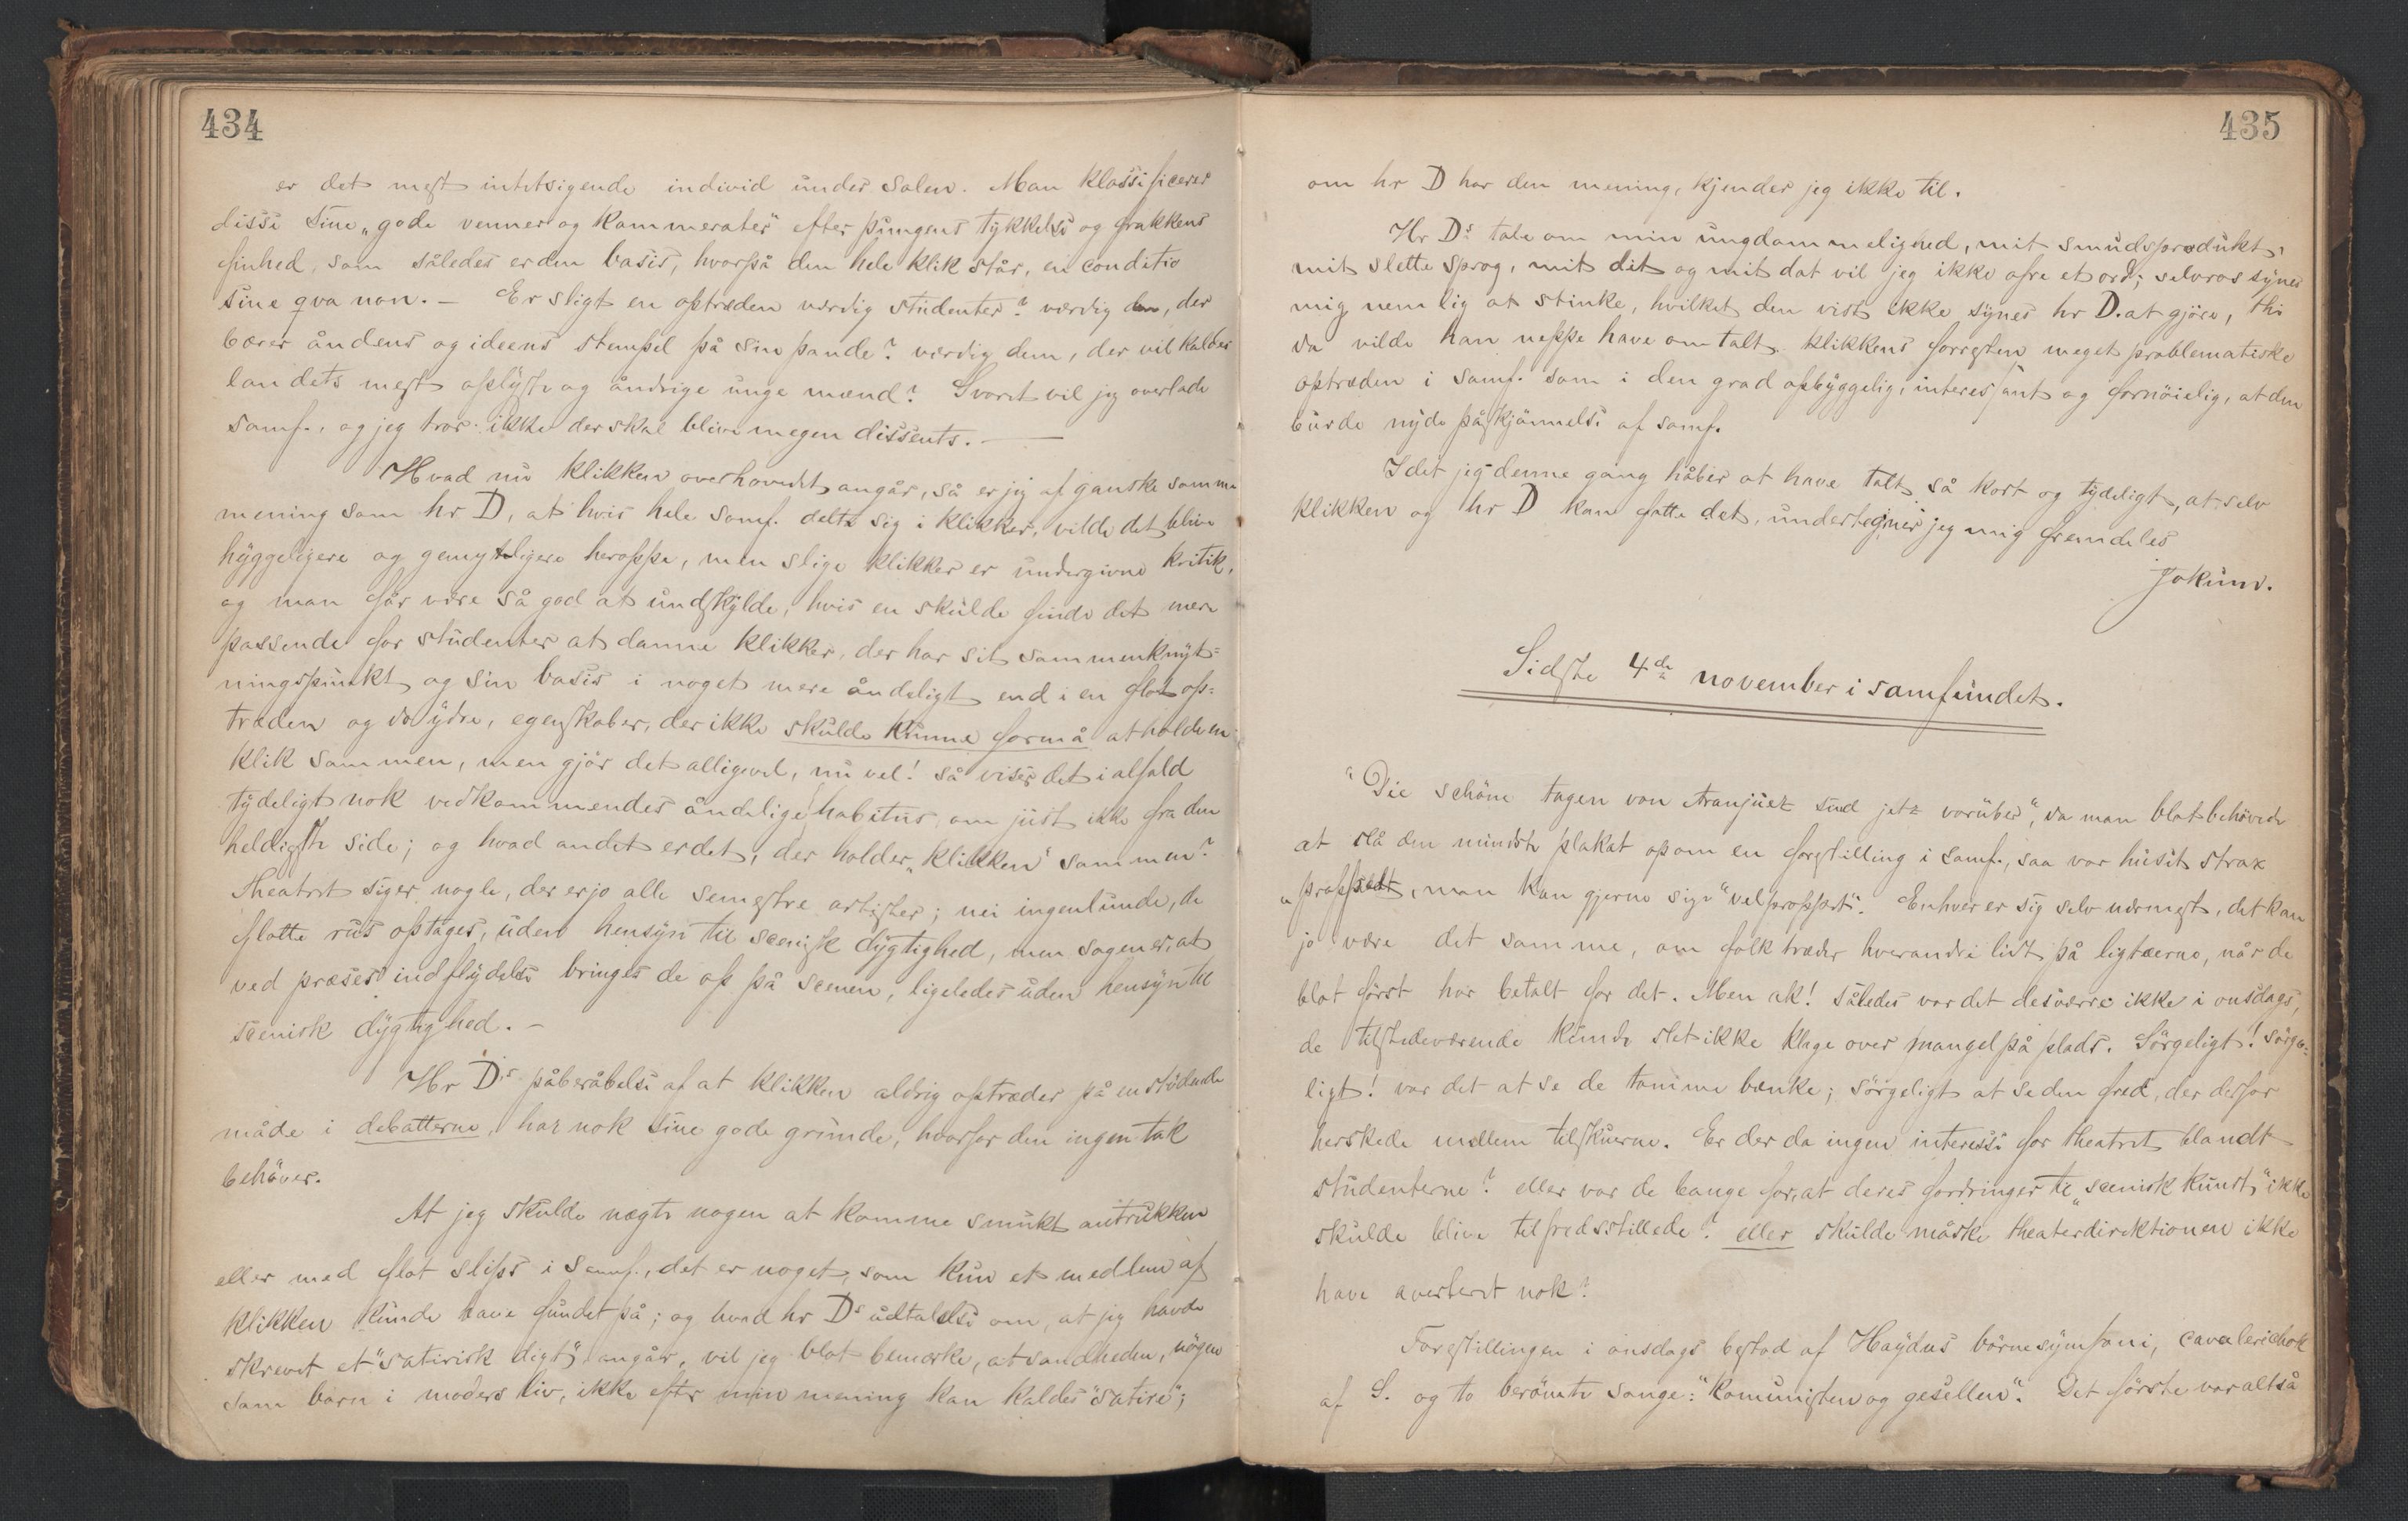 434
er det mest intetsigende individ under solen. Man klassificerer
disse sine „gode venner og kammerater" efter pungens tykkelse og frakkens
finhed, som således er den basis, hvorpå den hele klik står, en conditio
sine qva non. — Er sligt en optræden værdig studenter? værdig dem, der
bærer åndens og ideens stempel på sin pande? værdig dem, der vil kaldes
landets mest oplyste og åndrige unge mænd? Svaret vil jeg overlade
samf., og jeg tror ikke der skal blive megen dissents. —
Hvad nu klikken overhovedet angår, så er jeg af ganske samme
mening som hr D, at hvis hele samf. delte sig i klikker, vilde det blive
hyggeligere og gemytligere heroppe, men slige klikker er undergivne kritik,
og man får være så god at undskylde, hvis en skulde finde det mere
passende for studenter at danne klikker, der har sit sammenknyt=
ningspunkt og sin basis i noget mere åndeligt end i en flot op=
træden og do ydre, egenskaber, der ikke skulde kunne formå at holde en
klik sammen, men gjör det alligevel, nu vel! så viser det i alfald
tydeligt nok vedkommendes åndelige habitus, om just ikke fra den
heldigste side; og hvad andet er det, der holder „klikken" sammen?
Theatret siger nogle, der er jo alle semestre artister; nei ingenlunde, de
flotte rus optages, uden hensyn til scenisk dygtighed, men sagen er, at
ved præses' indflydelse bringes de op på scenen, ligeledes uden hensyn til
scenisk dygtighed. —
Hr D's påberåbelse af at klikken aldrig optræder på en stödende
måde i debatterne, har nok sine gode grunde, hvorfor den ingen tak
behöver.
At jeg skulde negte nogen at komme smukt antrukken
eller med flot slips i samf., det er noget, som kun et medlem af
klikken kunde have fundet på; og hvad hr Ds udtalelse om, at jeg havde
skrevet et "satirisk digt" angår, vil jeg blot bemærke, at sandheden, nögen
som barn i moders liv, ikke efter min mening kan kaldes "satire";
435
om hr D har den mening, kjender jeg ikke til.
Hr Ds tale om min ungdommelighed, mit smudsprodukt,
mit slette sprog, mit dit og mit dat vil jeg ikke ofre et ord; selvros synes
mig nemlig at stinke, hvilket den vist ikke synes hr D. at gjöre, thi
da vilde han neppe have omtalt klikkens forresten meget problematiske
optræden i samf. som i den grad opbyggelig, interessant og fornöielig, at den
burde nyde påskjönnelse af samf.
Idet jeg denne gang håber at have talt så kort og tydeligt, at selv
klikken og hr D kan fatte det, undertegner jeg mig fremdeles
Jokum.
Sidste 4de november i samfundet.
"Die schöne tagen von Aranjuez sind jetz vorüber", da man blot behövede
at slå den mindste plakat op om en forestilling i samf., saa var huset strax
"proppet, man kan gjerne sige "velproppet". Enhver er sig selv nærmest, det kan
jo være det samme, om folk træder hverandre lidt på ligtæerne, når de
blot först har betalt for det. Men ak! således var det desværre ikke i onsdags,
de tilstedeværende kunde slet ikke klage over mangel på plads. Sörgeligt! sörge=
ligt! var det at se de tomme bænke; sörgeligt at se den fred, der derfor
herskede mellem tilskuerne. Er der da ingen interesse for theatret blandt
studenterne? eller var de bange for, at deres fordringer til „scenisk kunst," ikke
skulde blive tilfredsstillede? eller skulde måske theaterdirektionen ikke
have averteret nok?
Forestillingen i onsdags bestod af Haydns börnesymfoni, cavalerichok
af S. og to berömte sange: "Komunisten og gesellen". Det förste var altså